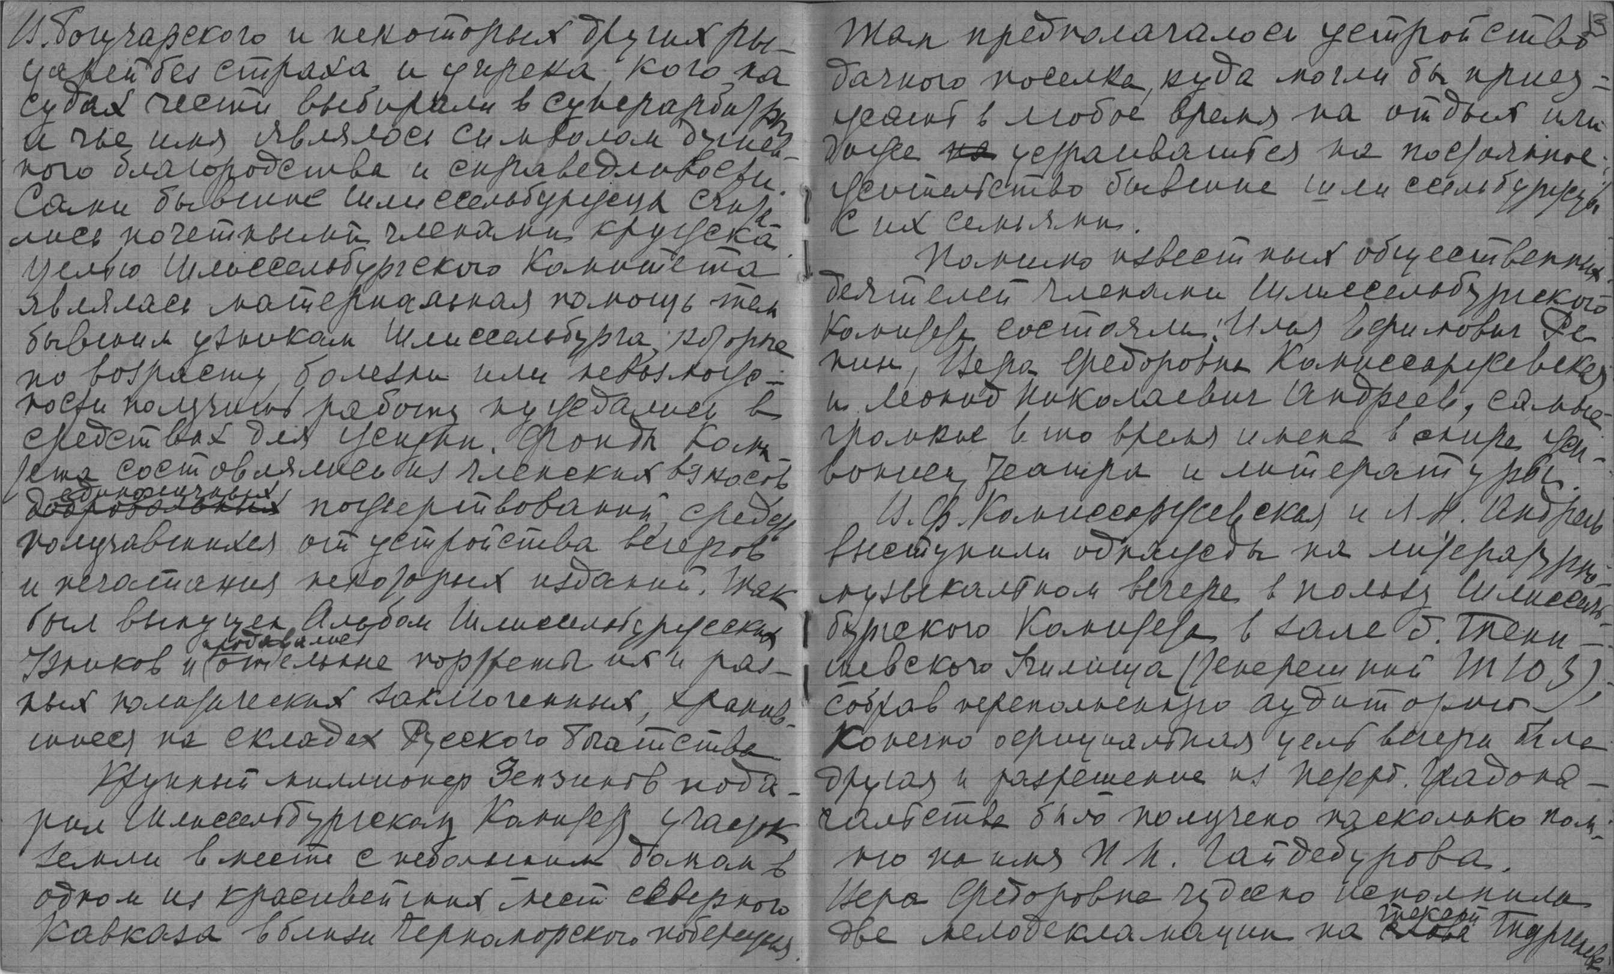 И. Богучарского и некоторых других ры-
царей без страха и упрека, кого на
судах чести выбирали в суперарбитры
и чье имя являлось символом душев-
ного благородства и справедливости.
Сами бывшие шлиссельбуржцы счита-
лись почетными членами кружка
Целью Шлиссельбургского Комитета
являлась материальная помощь тем
бывшим узникам Шлиссельбурга, которые
по возрасту, болезни или невозмож-
ности получить работу нуждались в
средствах для жизни. Фонды Коми-
тета составлялись из членских взносов
единоличных
добровольных пожертвований, средств
получавшихся от устройства вечеров
и печатания некоторых изданий. Так
был выпущен Альбом Шлиссельбургских
продавались
Узников и отдельные портреты их и раз-
ных политических заключенных, хранив-
шиеся на складах Русского Богатства
Крупный миллионер Зензинов пода-
рил Шлиссельбургскому Комитету участок
земли вместе с небольшим домом в
одном из красивейших мест северного
Кавказа вблизи Черноморского побережья.
13
Там предполагалось устройство
дачного поселка, куда могли бы приез-
жать в любое время на отдых или
даже на устраиваться на постоянное
жительство бывшие шлиссельбуржцы
с их семьями.
Помимо известных общественных
деятелей членами Шлиссельбургского
Комитета состояли: Илья Ефимович Ре-
пин, Вера Федоровна Комиссаржевская
и Леонид Николаевич Андреев, самые
громкие в то время имена в мире жи-
вописи, театра и литературы.
В. Ф. Комиссаржевская и Л. Н. Андреев
выступили однажды на литературно-
музыкальном вечере в пользу Шлиссель-
бургского Комитета в зале б. Тени-
шевского Училища (теперешний ТЮЗ),
собрав переполненную аудиторию
Конечно официальная цель вечера была
другая и разрешение из Петерб. Градона-
чальства было получено насколько пом-
ню на имя П. П. Гайдебурова.
Вера Федоровна чудесно исполнила
две мелодекламации на слова Тургенева